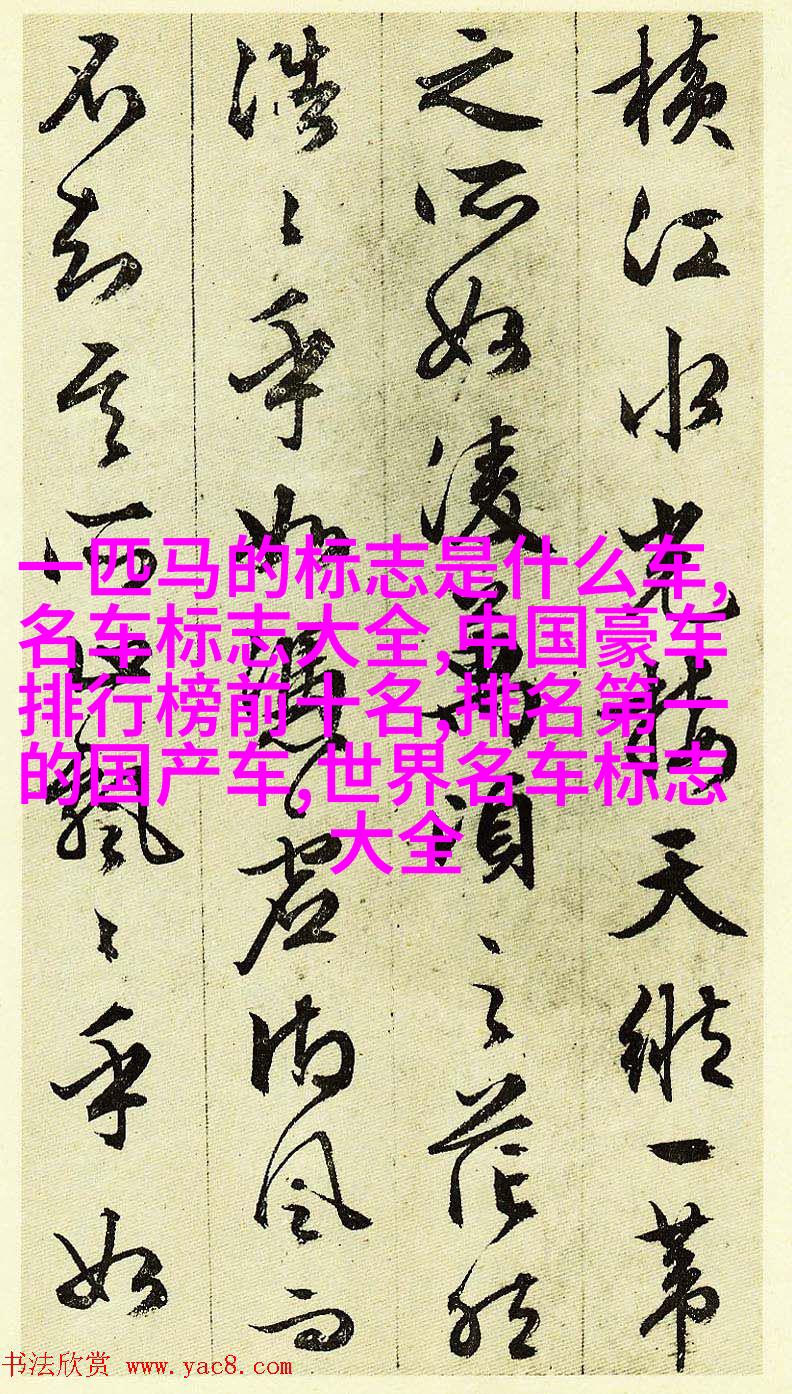 橫江水光接天縱一葦
之所如凌萬頃之茫然
浩〻乎如馮虛御風而
不知其所止飄〻乎如
一匹马的标志是什么车,
名车标志大全,中国豪车
排行榜前十名,排名第一
的国产车,世界名车标志
大全
书法欣赏 www.yac8.com